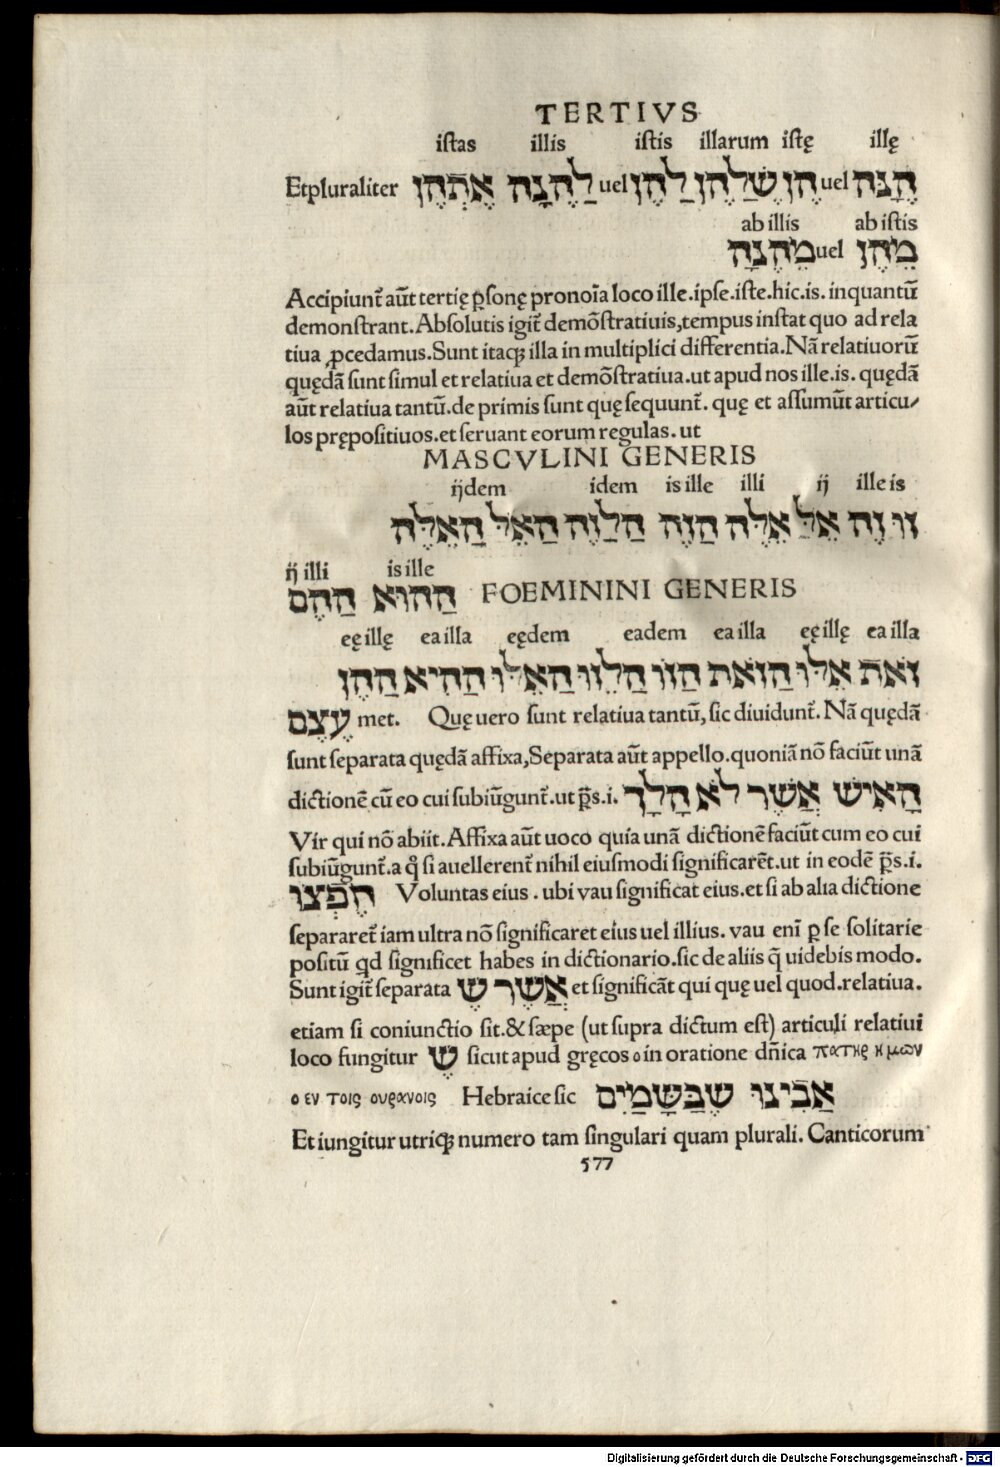 TERTIVS
iſtas illis iſtis illarum iſtę illę
Etpluraliter הֵנָּה uel הֶן שֶׁלָּהֶן לַהֶן uel לַהֶנָה אֶתְהֶן
ab illis ab iſtis
מֵהֶן uel מֵהֶנָה
Accipiunt᷑ aūt tertię ꝑſonę pronoīa loco ille.ipſe.iſte.hic.is. inquantū
demonſtrant.Abſolutis igit᷑ demōſtratiuis,tempus inſtat quo ad rela
tiua ꝓcedamus.Sunt itaqꝫ illa in multiplici differentia.Nā relatiuorū
quędā ſunt ſimul et relatiua et demōſtratiua.ut apud nos ille.is. quędā
aūt relatiua tantū.de primis ſunt quę ſequunt᷑. quę et aſſumūt articu⸗
los prępoſitiuos.et ſeruant eorum regulas. ut
MASCVLINI GENERIS
ijdem idem is ille illi ij ille is
זוּ וְזֶה אֵל אֵלֶּה הַזֶה הַלַזֶה הַאֵל הַאֵלֶּה
ij illi is ille
הַהוּא הַהֶם FOEMININI GENERIS
eę illę ea illa eędem eadem ea illa eę illę ea illa
זֹאת אֵלוּ הַזֹאת הַזוֹ הַלֵזוּ הַאֵלוּ הַהִיא הַהֶן
עֶצֶם met. Quę uero ſunt relatiua tantū, ſic diuidunt᷑. Nā quędā
ſunt ſeparata quędā affixa,Separata aūt appello.quoniā nō faciūt unā
dictionē cū eo cui ſubiūgunt᷑.ut p̄s.i. הָאִישׁ אֲשֶׁר לֹא הָלַךְ
Vir qui nō abiit.Affixa aūt uoco quia unā dictionē faciūt cum eo cui
ſubiūgunt᷑.a q̊ ſi auellerent᷑ nihil eiuſmodi ſignificarēt.ut in eodē p̄s.i.
חֶפְצוֹ Voluntas eius . ubi vau ſignificat eius.et ſi ab alia dictione
ſepararet᷑ iam ultra nō ſignificaret eius uel illius. vau enī ꝑ ſe ſolitarie
poſitū qd ſignificet habes in dictionario.ſic de aliis q̄ uidebis modo.
Sunt igit᷑ ſeparata אֲשֶׁר שֶׁ et ſignificāt qui quę uel quod.relatiua.
etiam ſi coniunctio ſit.& ſæpe (ut ſupra dictum eſt) articuli relatiui
loco fungitur שֶׁ ſicut apud gręcos ο in oratione dn̄ica πατηρ ημων
ο εν τοις ουρανοις Hebraice ſic אַבִינוּ שֶׁבַּשָּׁמַיִם
Et iungitur utriqꝫ numero tam ſingulari quam plurali. Canticorum
577
Digitalisierung gefördert durch die Deutsche Forschungsgemeinschaft - DFG